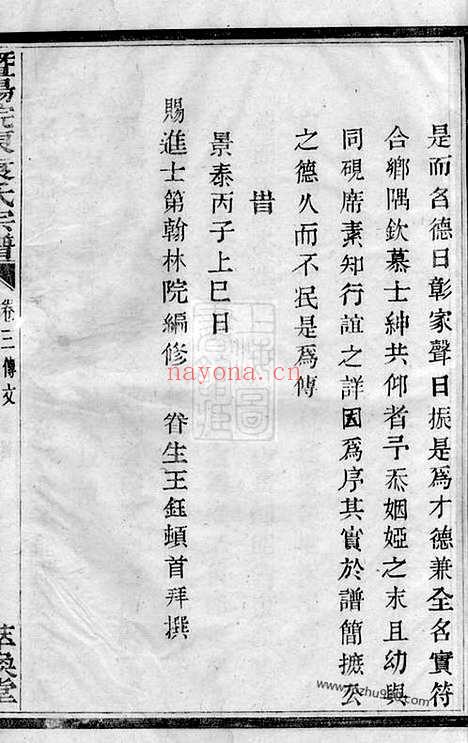 是而名德日彰家聲日振是爲才德兼全名實符
合鄉隅欽慕士紳共仰者予忝姻婭之末且幼與
同硯席素知行誼之詳因爲序其實於譜簡摭公
之德久而不泯是爲傳
旹
景泰丙子上巳日
賜進士第翰林院編修 眷生王鈺頓首拜撰
暨陽 東 氏宗譜 卷三 傳文 萃渙堂
nayona.cn